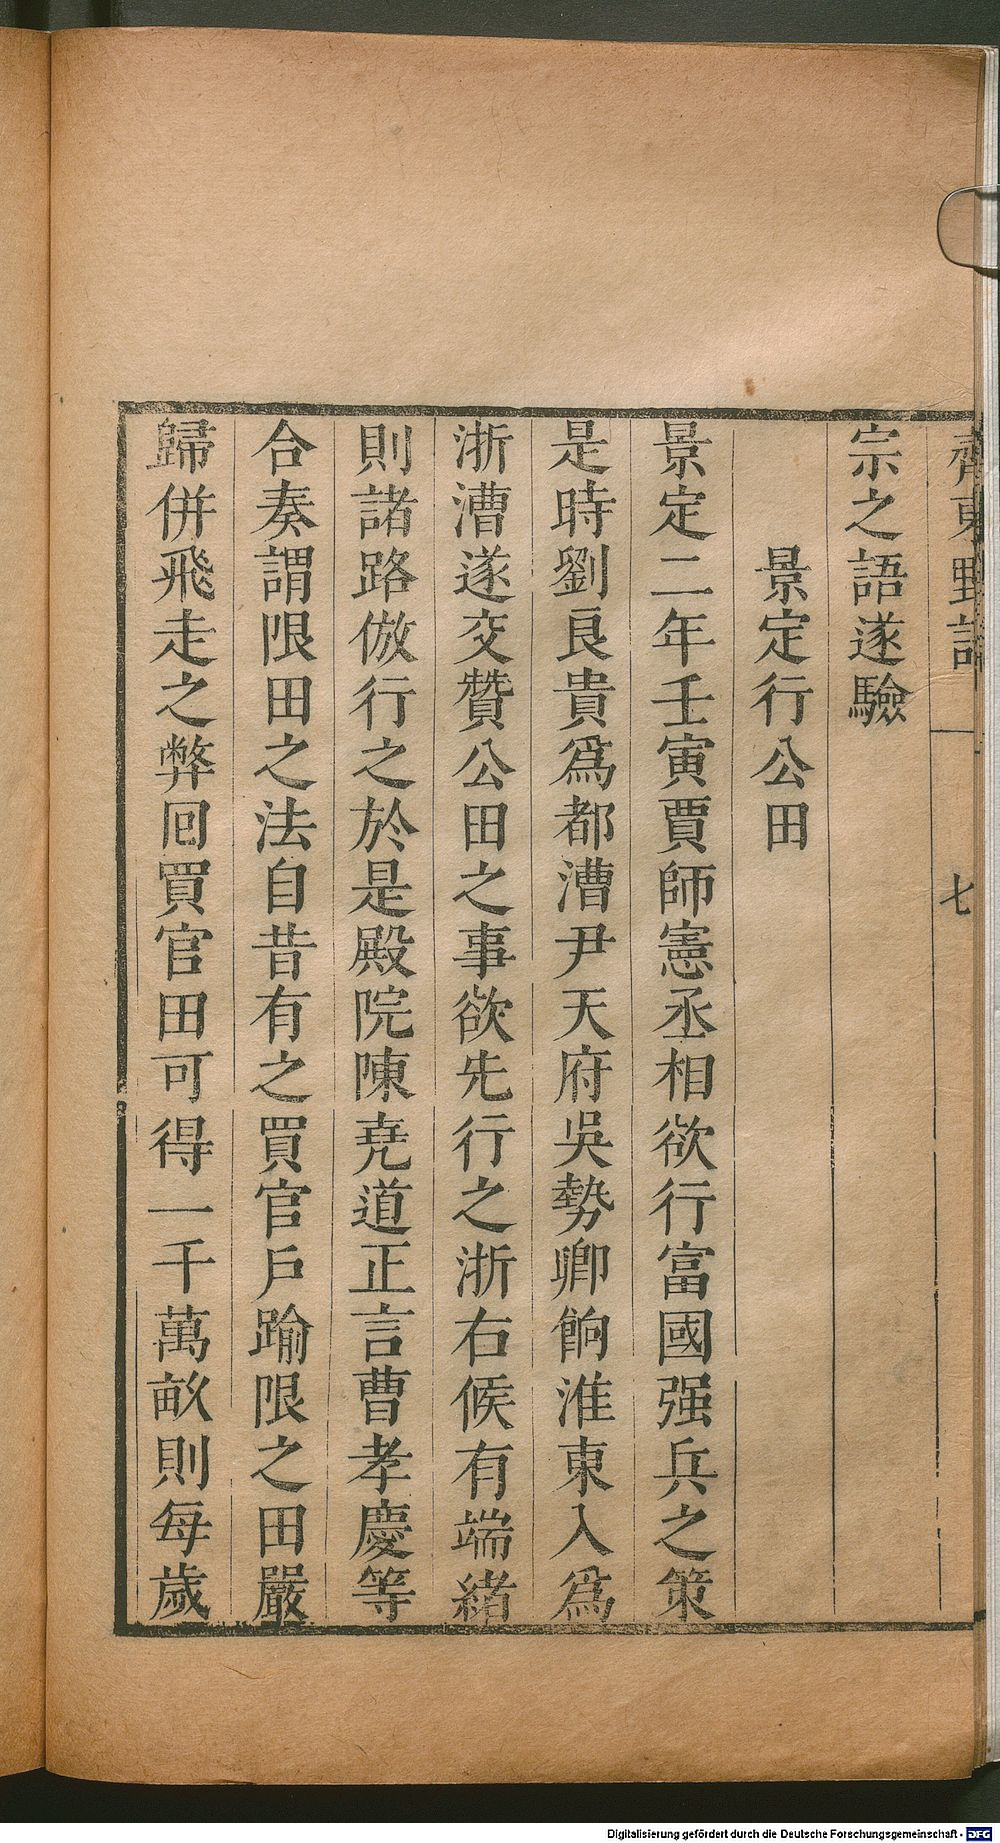 齊東野語
七
宗之語遂驗
景定行公田
景定二年壬寅賈師憲丞相欲行富國强兵之策
是時劉良貴爲都漕尹天府吳勢卿餉淮東入爲
浙漕遂交贊公田之事欲先行之浙右候有端緒
則諸路倣行之於是殿院陳堯道正言曹孝慶等
合奏謂限田之法自昔有之買官戶踰限之田嚴
歸併飛走之弊回買官田可得一千萬畝則每歲
Digitalisierung gefördert durch die Deutsche Forschungsgemeinschaft - DFG